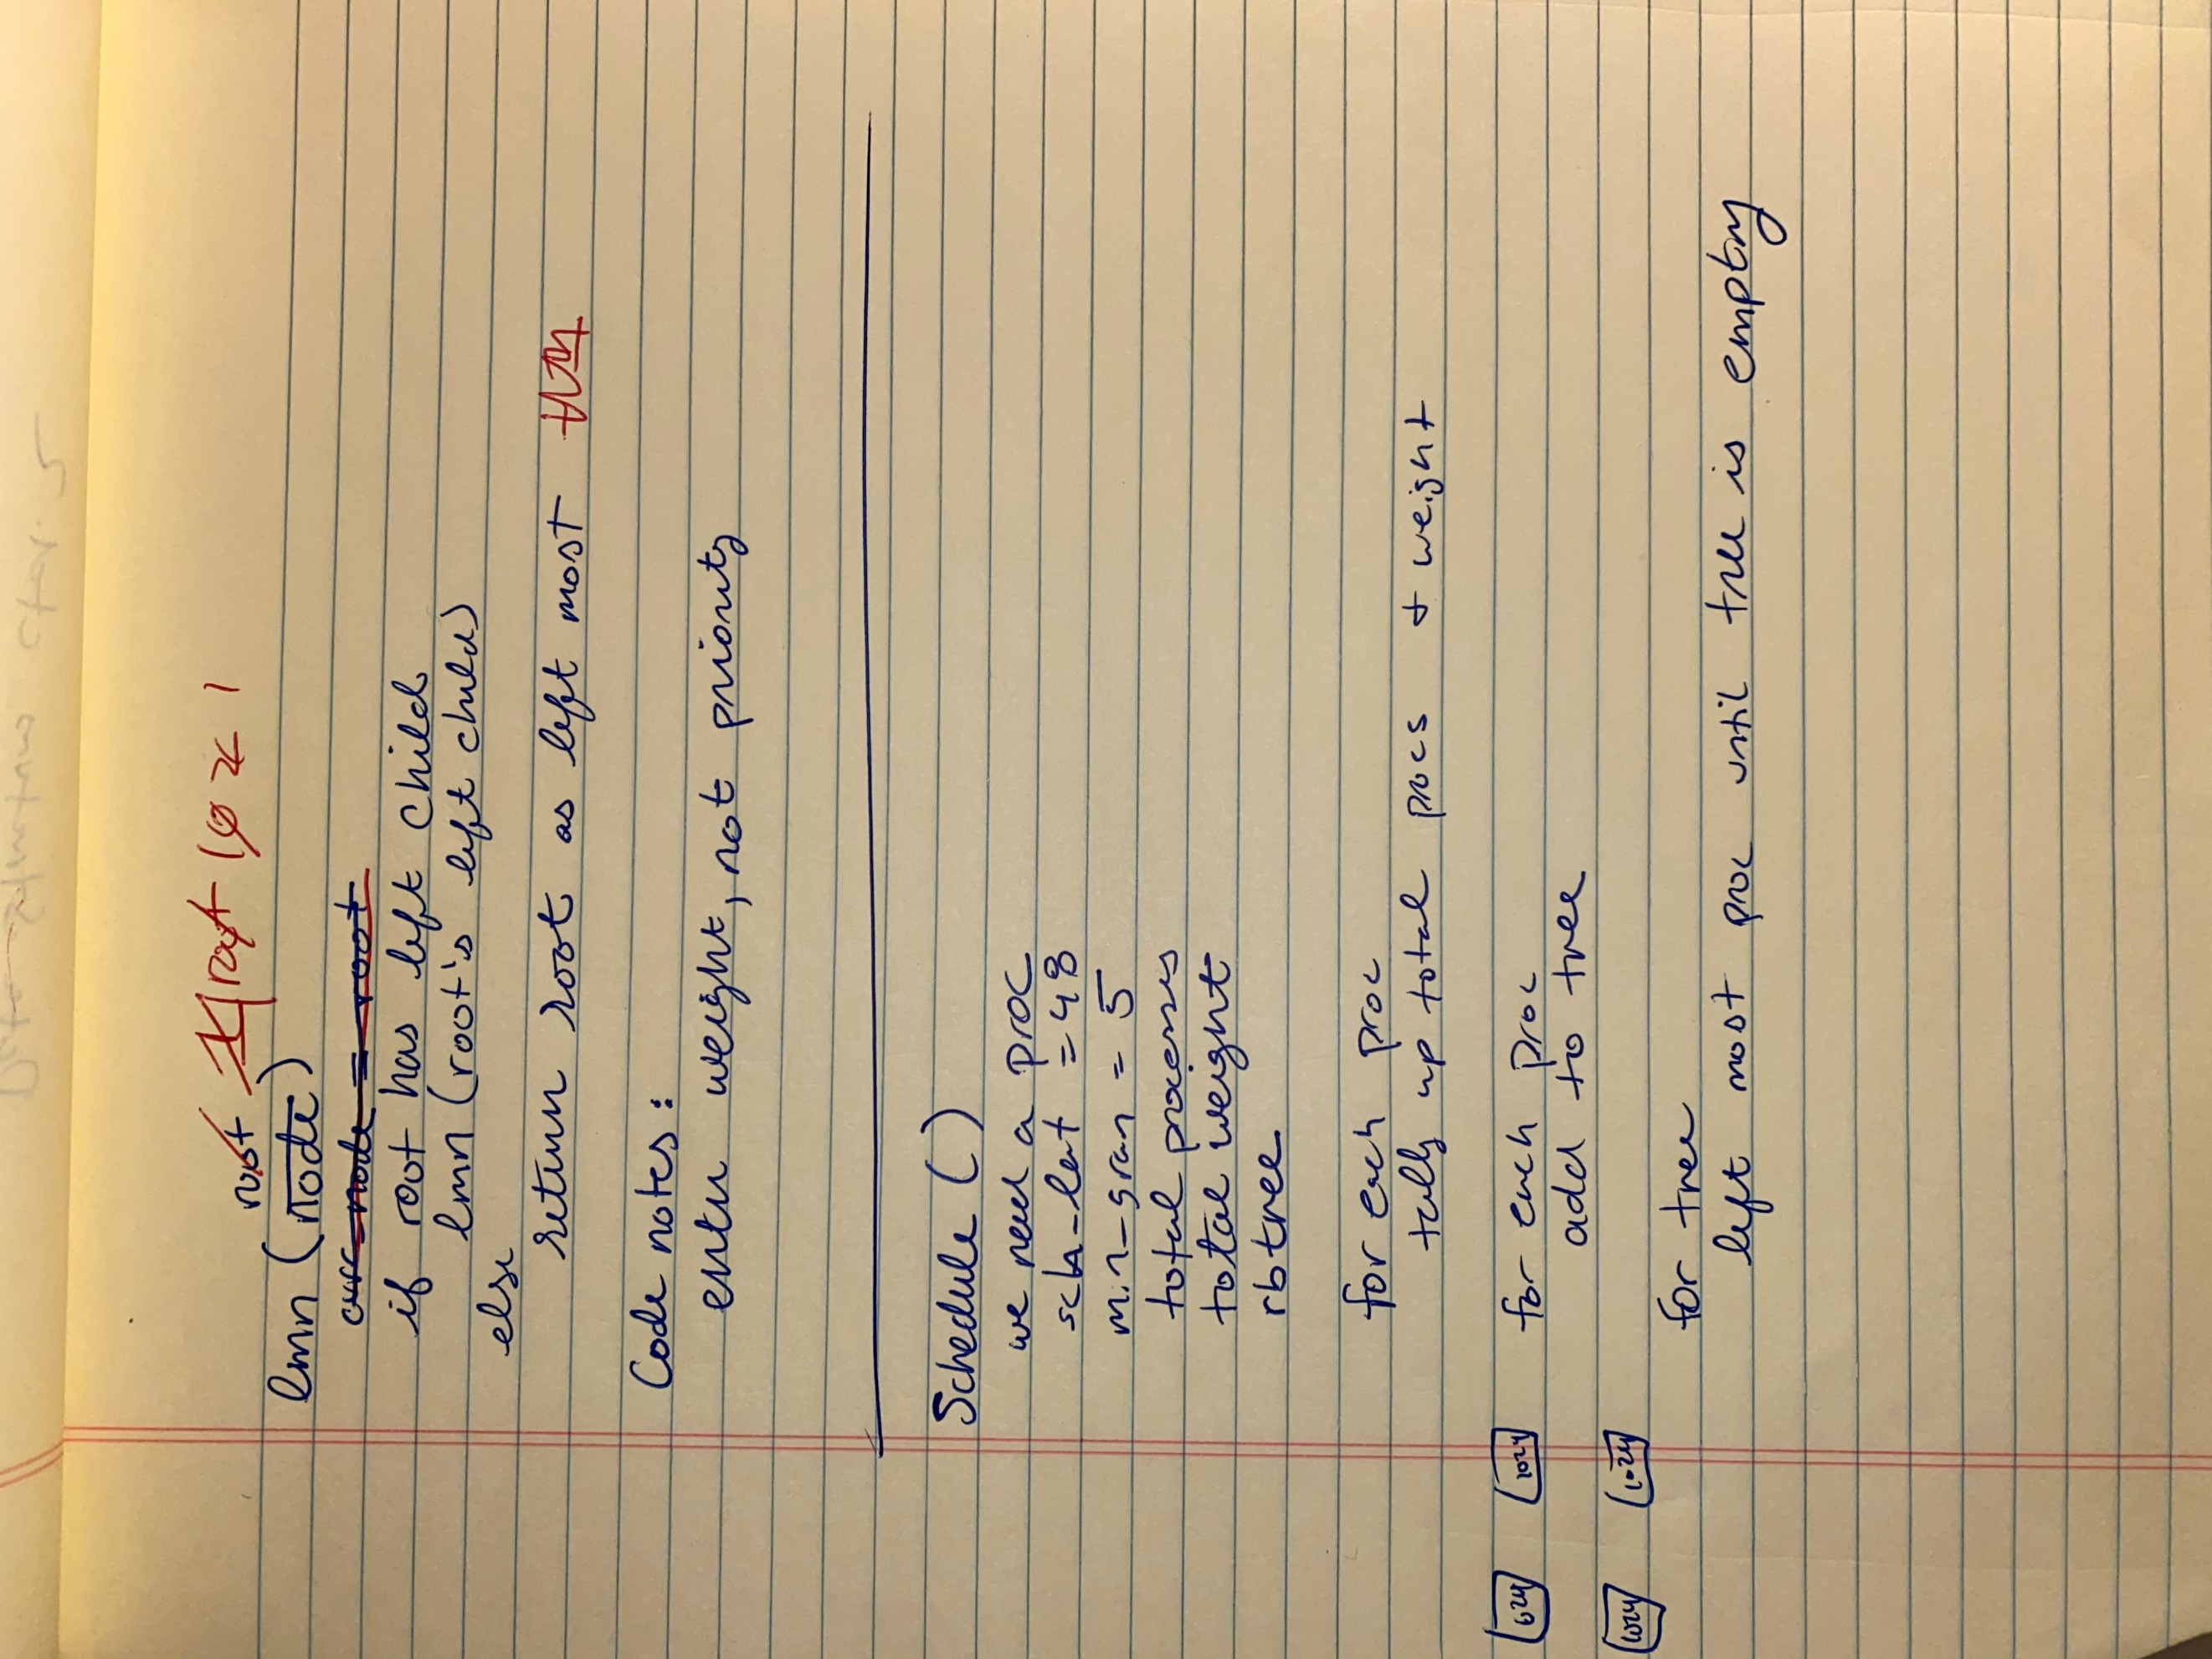 root
lmn (node)
curr node = root
if root has left child
lmn (root's left child)
else
return root as left most
Code notes:
enter weight, not priority
Schedule ()
we need a proc
sch-lat = 48
min-gran = 5
total processes
total weight
rbtree
for each proc
tally up total procs + weight
for each proc
add to tree
for tree
left most proc until tree is empty
1024
1024
1024